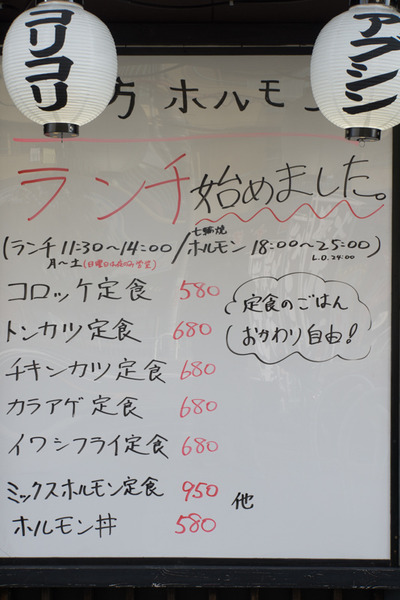 コリコリ
アブシシ
方 ホルモン
ランチ始めました。
(ランチ 11:30〜14:00 / 七輪焼 ホルモン 18:00〜25:00)
月〜土 L.O. 24:00
コロッケ定食 580
トンカツ定食 680
チキンカツ定食 680
カラアゲ定食 680
イワシフライ定食 680
ミックスホルモン定食 950 他
ホルモン丼 580
定食のごはん
おかわり自由!